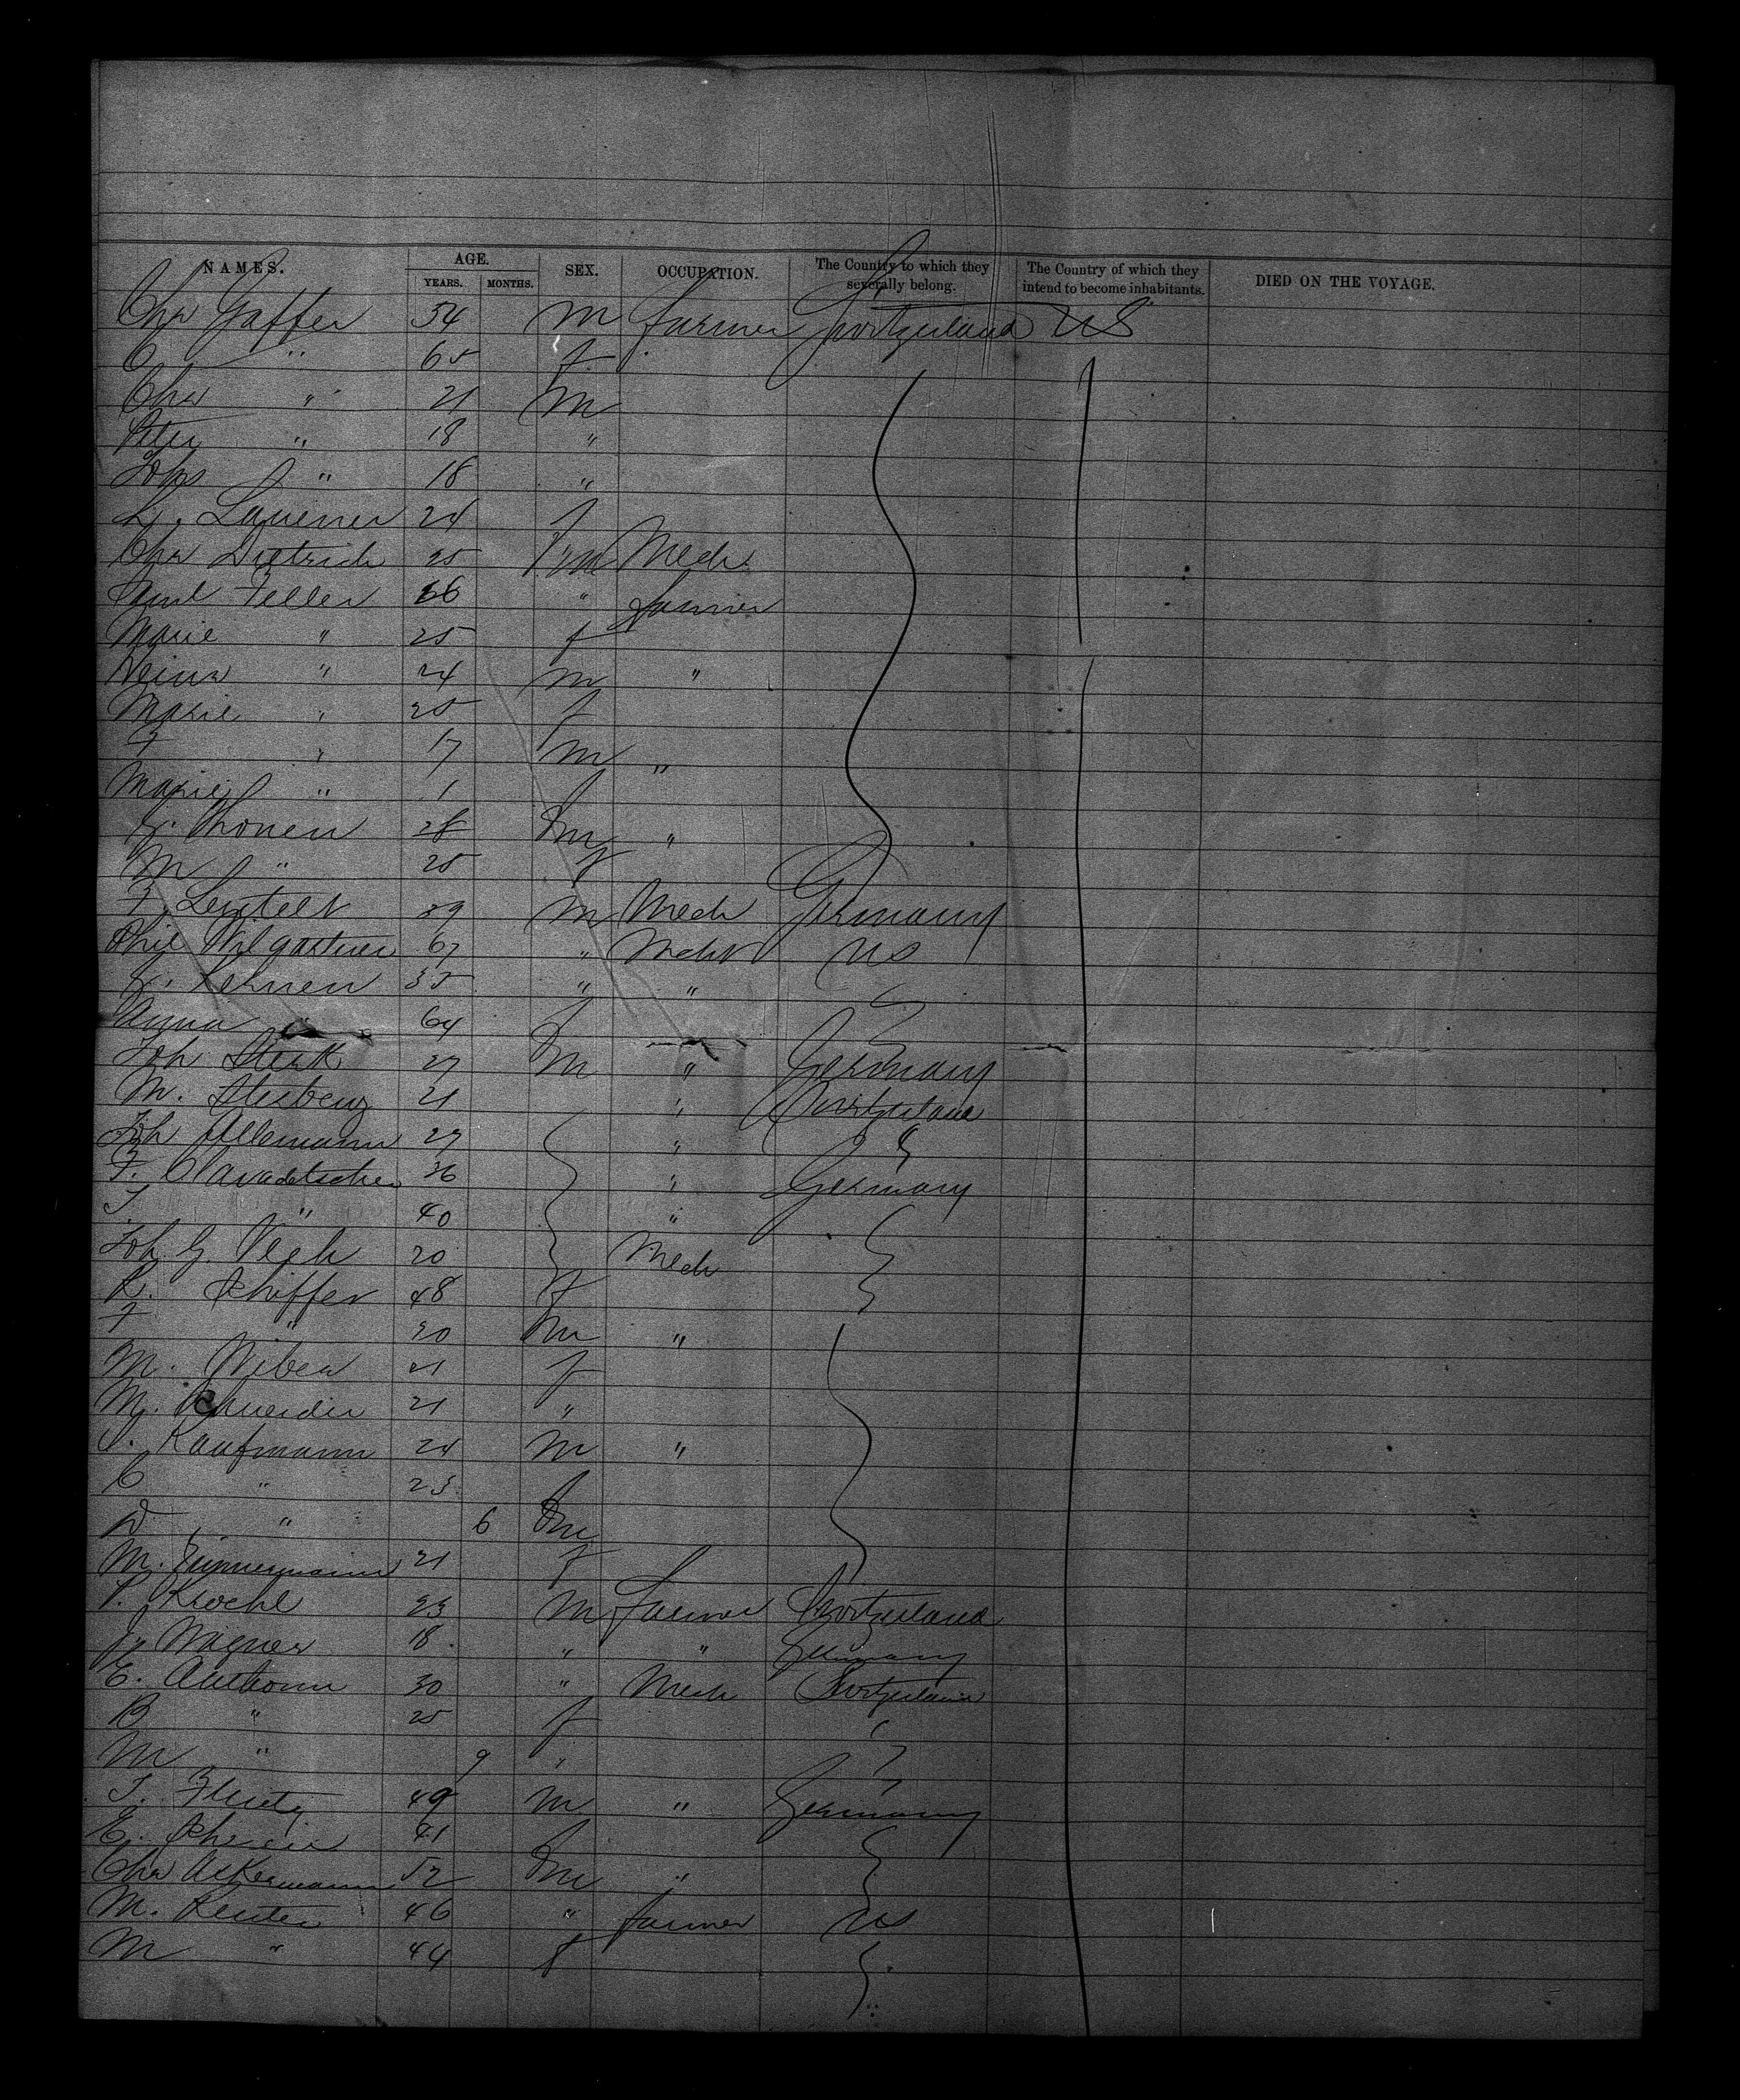 NAMES. AGE. SEX. OCCUPATION. The Country to which they severally belong. The Country of which they intend to become inhabitants. DIED ON THE VOYAGE.
YEARS. MONTHS.
Chr Gaffer 54 m farmer Switzerland US
C " 65 f
Chr " 21 m
Peter " 18 "
Johs " 18 "
L. Lauener 24 f
Chr Dietrich 25 m Mech
Feller "farmer
Marie " 25 f
" 24 m "
Marie " 25 f
F " 17 m "
Marie " 1 f
G. Thonen 28 m "
M " 25 f
F. 39 m Mech Germany
Phil 67 " US
G. Kernen 35 " "
Anna " 64 f
Joh Sterk 27 m " Germany
M. 21 " Switzerland
Joh Allemann 27 "
F. Clavadetscher 36 " Germany
J " 40 "
Joh G. 20 Mech
R. Schiffer 48 f
F " 20 m "
M. 21 f
M. Schneider 21 "
J. Kaufmann 24 m "
C " 23 f
" 6 m
M. Zimmermann 21 f
23 m Farmer Switzerland
J. Wagner 18 " " Germany
E. 30 " Mech Switzerland
B " 25 f
M " 9 "
J. 49 m " Germany
E. 41 f
Chr Ackermann 52 m "
M. Reuter 46 " farmer US
M " 44 f